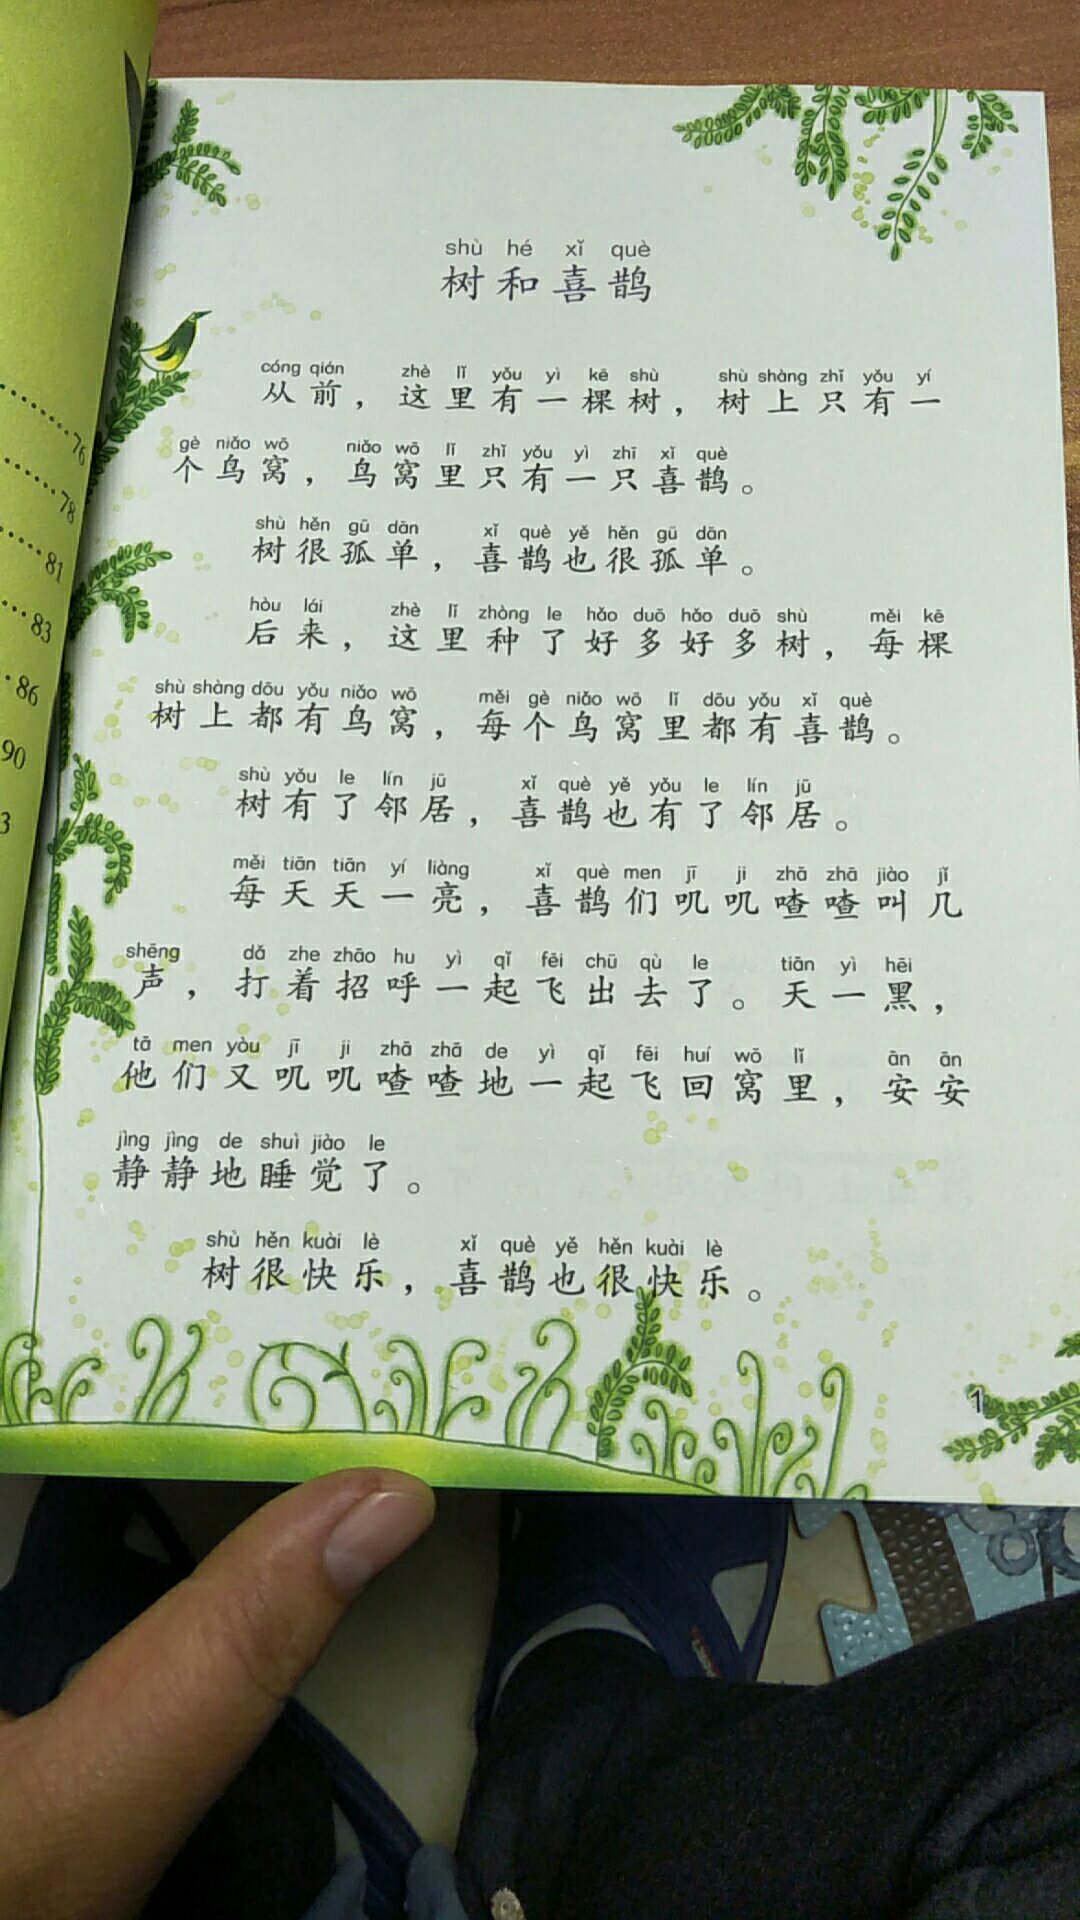 76
78
81
83
86
90
3
shù hé xǐ què
树和喜鹊
cóng qián zhè lǐ yǒu yì kē shù shù shàng zhǐ yǒu yí
从前，这里有一棵树，树上只有一
gè niǎo wō niǎo wō lǐ zhǐ yǒu yì zhī xǐ què
个鸟窝，鸟窝里只有一只喜鹊。
shù hěn gū dān xǐ què yě hěn gū dān
树很孤单，喜鹊也很孤单。
hòu lái zhè lǐ zhòng le hǎo duō hǎo duō shù měi kē
后来，这里种了好多好多树，每棵
shù shàng dōu yǒu niǎo wō měi gè niǎo wō lǐ dōu yǒu xǐ què
树上都有鸟窝，每个鸟窝里都有喜鹊。
shù yǒu le lín jū xǐ què yě yǒu le lín jū
树有了邻居，喜鹊也有了邻居。
měi tiān tiān yí liàng xǐ què men jī ji zhā zhā jiào jǐ
每天天一亮，喜鹊们叽叽喳喳叫几
shēng dǎ zhe zhāo hu yì qǐ fēi chū qù le tiān yì hēi
声，打着招呼一起飞出去了。天一黑，
tā men yòu jī ji zhā zhā de yì qǐ fēi huí wō lǐ ān ān
他们又叽叽喳喳地一起飞回窝里，安安
jìng jìng de shuì jiào le
静静地睡觉了。
shù hěn kuài lè xǐ què yě hěn kuài lè
树很快乐，喜鹊也很快乐。
1